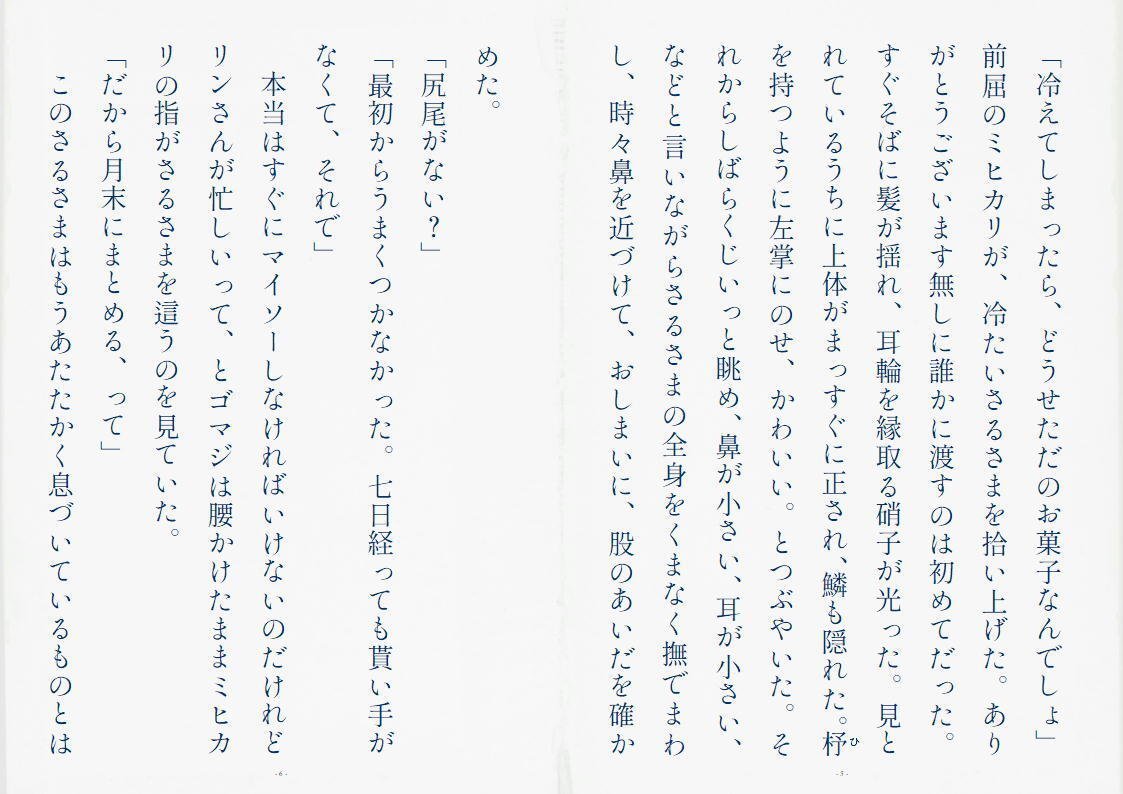 「冷えてしまったら、どうせただのお菓子なんでしょ」
前屈のミヒカリが、冷たいさるさまを拾い上げた。あり
がとうございます無しに誰かに渡すのは初めてだった。
すぐそばに髪が揺れ、耳輪を縁取る硝子が光った。見と
れているうちに上体がまっすぐに正され、鱗も隠れた。杼
ひ
を持つように左掌にのせ、かわいい。とつぶやいた。そ
れからしばらくじいっと眺め、鼻が小さい、耳が小さい、
などと言いながらさるさまの全身をくまなく撫でまわ
し、時々鼻を近づけて、おしまいに、股のあいだを確か
- 5 -
めた。
「尻尾がない？」
「最初からうまくつかなかった。七日経っても貰い手が
なくて、それで」
本当はすぐにマイソーしなければいけないのだけれど
リンさんが忙しいって、とゴマジは腰かけたままミヒカ
リの指がさるさまを這うのを見ていた。
「だから月末にまとめる、って」
このさるさまはもうあたたかく息づいているものとは
- 6 -